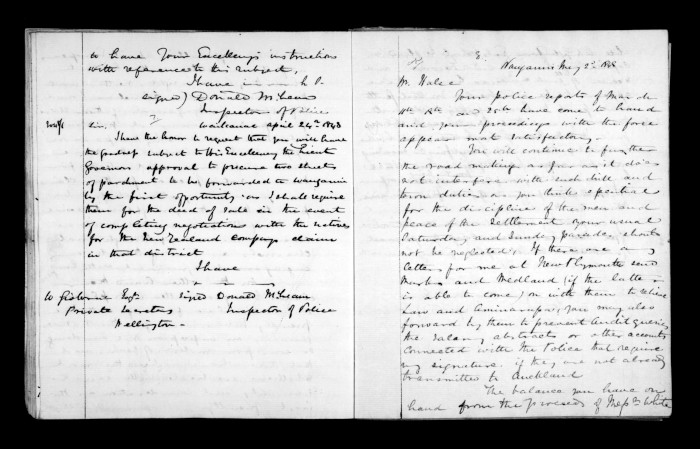 to have Your Excellency's instructions
with reference to this subject,
I have
signed) Donald McLean
Inspector of Police
Sir, Wanganui April 24th 1848
I have the honor to request that you will have
the goodness subject to His Excellency the Lieut
Governors approval to procure two sheets
of parchment to be forwarded to Wanganui
by the first opportunity as I shall require
them for the deed of sale in the event
of completing negotiations with the natives
for the New Zealand Company's claim
in that district
I have
signed Donald McLean
Inspector of Police
to Gisborne Esqr
Private Secretary
Wellington
Wanganui May 2nd
Mr. Halse
Your police reports of March
and 25th have come to hand
and your proceedings with the force
appear most satisfactory.
You will continue to further
the road making as far as it does
not interfere with such drill and
town duties as you think essential
for the discipline of the men and
peace of the settlement your usual
Saturday and Sunday parades should
not be neglected; If there are any
letters for me at New Plymouth send
and Medland (if the latter
is able to come) on with them to relieve
Law and you may also
forward by them to prevent Audit queries
the Salary abstracts or other accounts
connected with the Police that require
my signature if they are not already
transmitted to Auckland
The balance you have on
hand from the proceeds of White